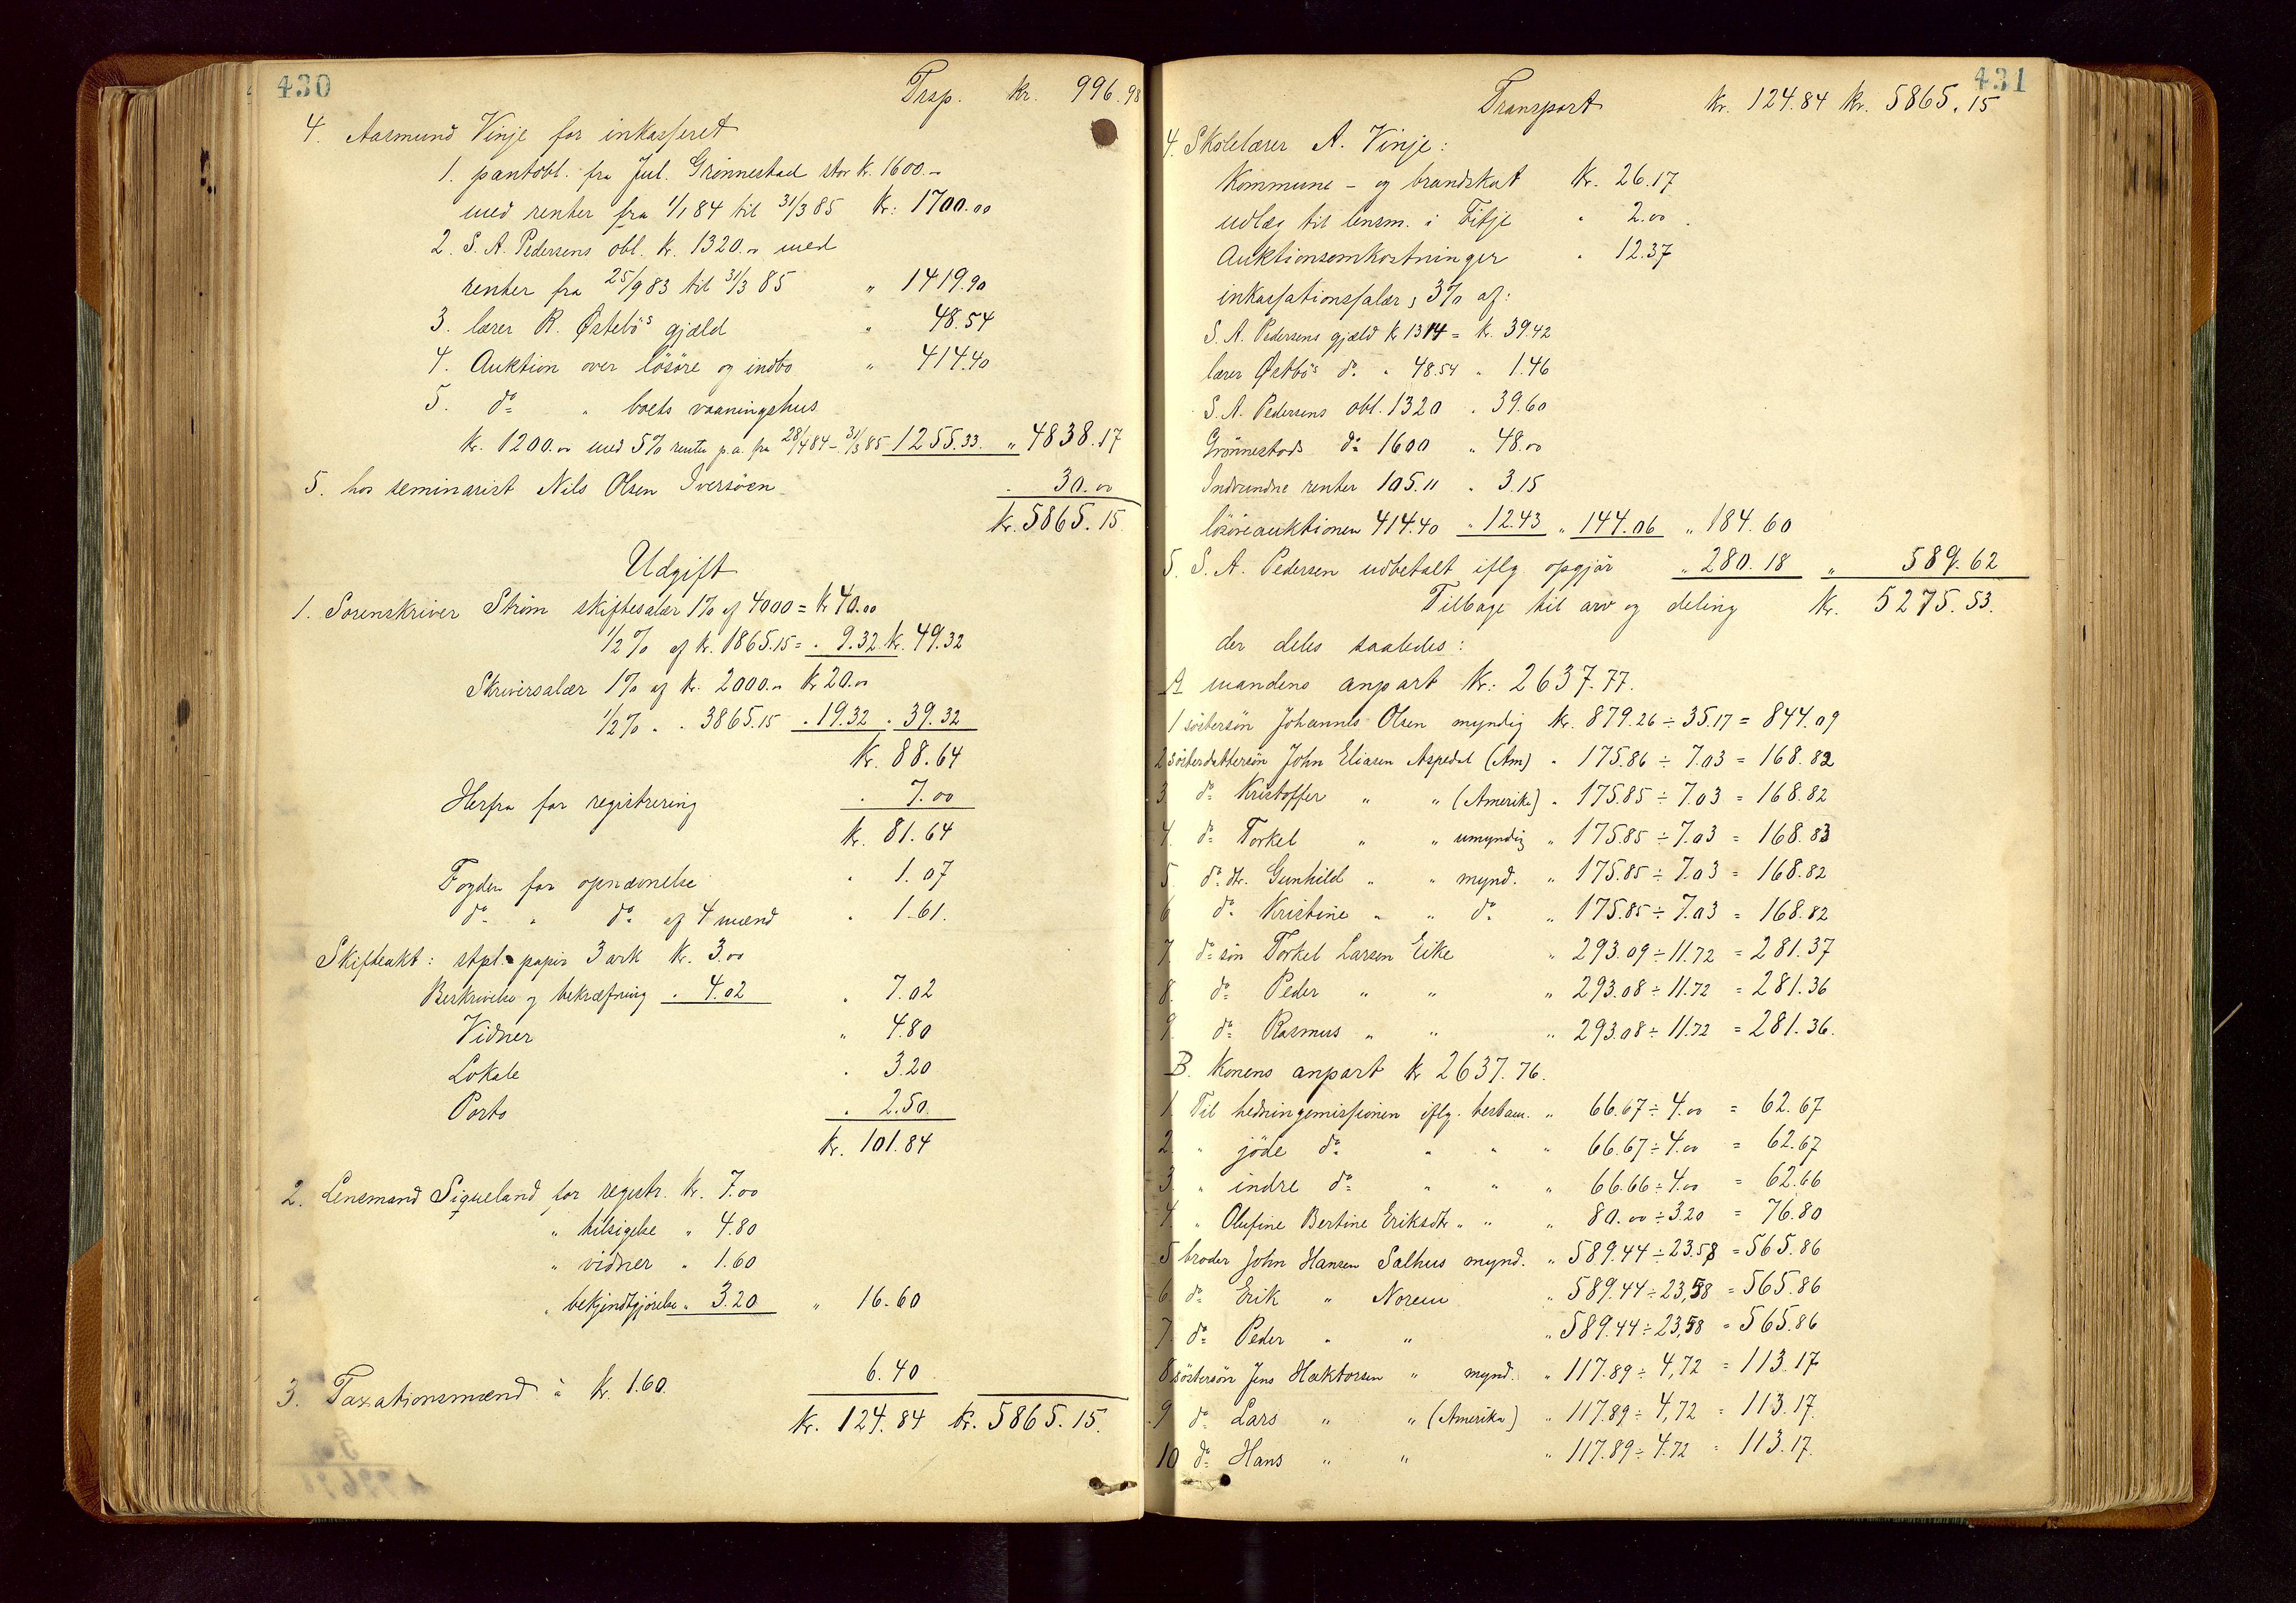 430
Trsp. kr. 996.98
4. Aasmund Vinje for inkasseret
1. pantobl. fra Jul. Grönnestad stor kr. 1600.-
med renter fra 1/1 84 til 31/3 85 kr: 1700.00
2. S. A. Pedersens obl. kr. 1320.00 med
renter fra 25/9 83 til 31/3 85 " 1419.90
3. lærer R. Østebö's gjæld " 48.54
4. Auktion over lösöre og indbo " 414.40
5. do " boets vaaningshus
kr. 1200.00 med 5% renter p.a. fra 28/4 84 - 31/3 85 1255.33. " 4838.17
5. hos seminarist Nils Olsen Iversöen " 30.00
kr. 5865.15
Udgift
1. Sorenskriver Ström skiftesalær 1% af 4000 = kr 40.00
1/2% af kr. 1865.15 = " 9.32 kr. 49.32
Skriversalær 1% af kr. 2000.00 kr 20.00
1/2% " " 3865.15 " 19.32 " 39.32
kr. 88.64
Herfra for registrering " 7.00
kr. 81.64
Fogden for opnævnelse " 1.07
do " do af 4 mænd " 1.61.
Skifteakt: stpl. papir 3 ark kr. 3.00
Beskrivelse og bekræftning " 4.02 " 7.02
Vidner " 4.80
Lokale " 3.20
Porto " 2.50.
kr. 101.84
2. Lensmand Siqueland for registr. kr. 7.00
" tilsigelse " 4.80
" vidner " 1.60
" bekjendtgjörelse " 3.20 " 16.60
3. Taxationsmænd à kr. 1.60. 6.40
kr. 124.84 kr. 5865.15.
431
Transport kr. 124.84 kr. 5865.15
4. Skolelærer A. Vinje:
Kommune- og brandskat kr. 26.17
udlæg til lensm. i Fitje " 2.00
Auktionsomkostninger " 12.37
inkassationssalær, 3% af:
S. A. Pedersens gjæld kr 1314 = kr. 39.42
lærer Østbö's do " 48.54 " 1.46
S. A. Pedersens obl. 1320 " 39.60
Grönnestads do 1600 " 48.00
Indvundne renter 105.11 " 3.15
lösöreauktionen 414.40 " 12.43 " 144.06 " 184.60
5. S. A. Pedersen udbetalt iflg opgjör " 280.18 " 589.62
Tilbage til arv og deling kr. 5275.53.
der deles saaledes:
A mandens anpart kr: 2637.77.
1 söstersön Johannes Olsen myndig kr. 879.26 ÷ 35.17 = 844.09
2 sösterdattersön John Eliasen Aspedal (Am) " 175.86 ÷ 7.03 = 168.82
3 do Kristoffer " " (Amerika) " 175.85 ÷ 7.03 = 168.82
4. do Torkel " " umyndig " 175.85 ÷ 7.03 = 168.83
5 do dtr. Gunhild " " mynd. " 175.85 ÷ 7.03 = 168.82
6 do Kristine " " do " 175.85 ÷ 7.03 = 168.82
7. do sön Torkel Larsen Eike " 293.09 ÷ 11.72 = 281.37
8. do Peder " " " 293.08 ÷ 11.72 = 281.36
9. do Rasmus " " " 293.08 ÷ 11.72 = 281.36.
B. Konens anpart kr 2637.76.
1. Til hedningemissionen iflg. testam. " 66.67 ÷ 4.00 = 62.67
2. " jöde do " " " 66.67 ÷ 4.00 = 62.67
3 " indre do " " " 66.66 ÷ 4.00 = 62.66
4 " Olufine Bertine Eriksdtr " " " 80.00 ÷ 3.20 = 76.80
5 broder John Hansen Salhus mynd. " 589.44 ÷ 23.58 = 565.86
6 do Erik " Norem " 589.44 ÷ 23,58 = 565.86
7 do Peder " " " 589.44 ÷ 23,58 = 565.86
8 söstersön Jens Haktorsen " mynd. " 117.89 ÷ 4,72 = 113.17
9 do Lars " " (Amerika) " 117.89 ÷ 4,72 = 113.17.
10 do Hans " " " 117.89 ÷ 4.72 = 113.17.